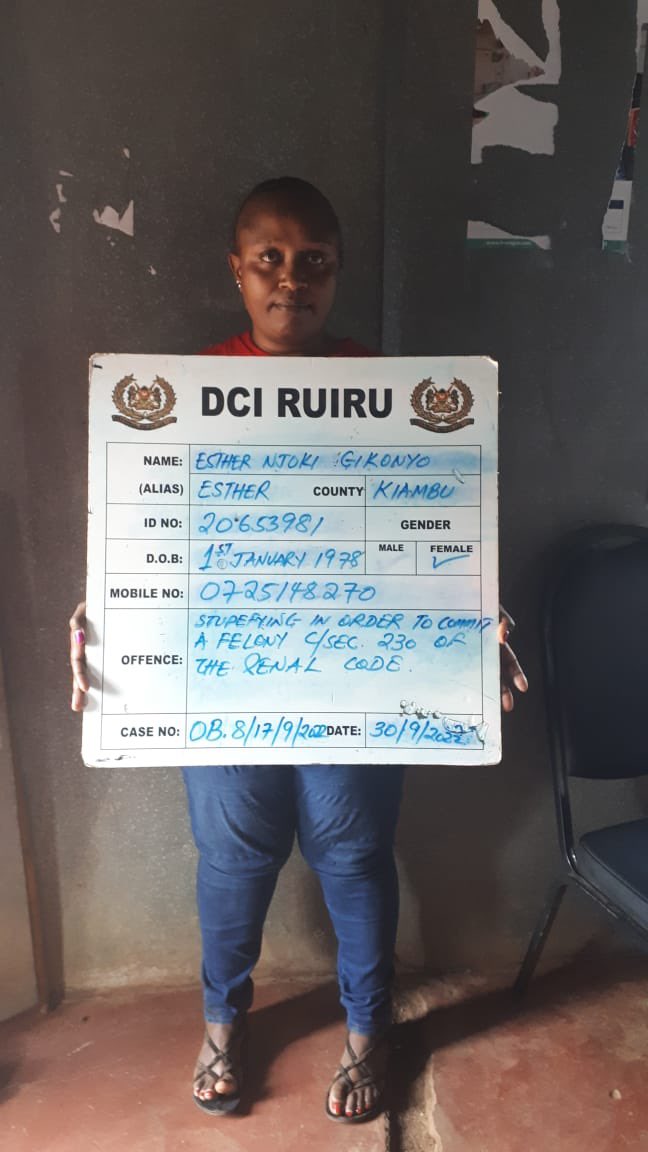 DCI RUIRU
NAME: ESTHER NJOKI GIKONYO
(ALIAS) ESTHER COUNTY KIAMBU
ID NO: 20653981 GENDER
D.O.B: 1ST JANUARY 1978 MALE FEMALE ✓
MOBILE NO: 0725148270
STUPEFYING IN ORDER TO COMMIT
A FELONY C/SEC. 230 OF
OFFENCE: THE PENAL CODE.
CASE NO: OB. 8/17/9/2022 DATE: 30/9/2022